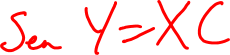 Sea Y=XC